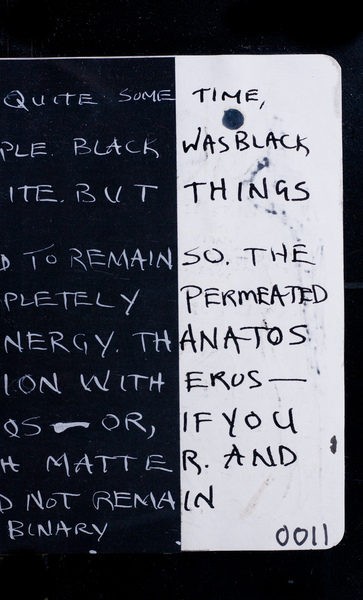 QUITE SOME TIME,
PLE. BLACK WAS BLACK
ITE. BUT THINGS
D TO REMAIN SO. THE
PLETELY PERMEATED
NERGY. THANATOS
ION WITH EROS—
OS — OR, IF YOU
H MATTER. AND
D NOT REMAIN
BINARY
0011